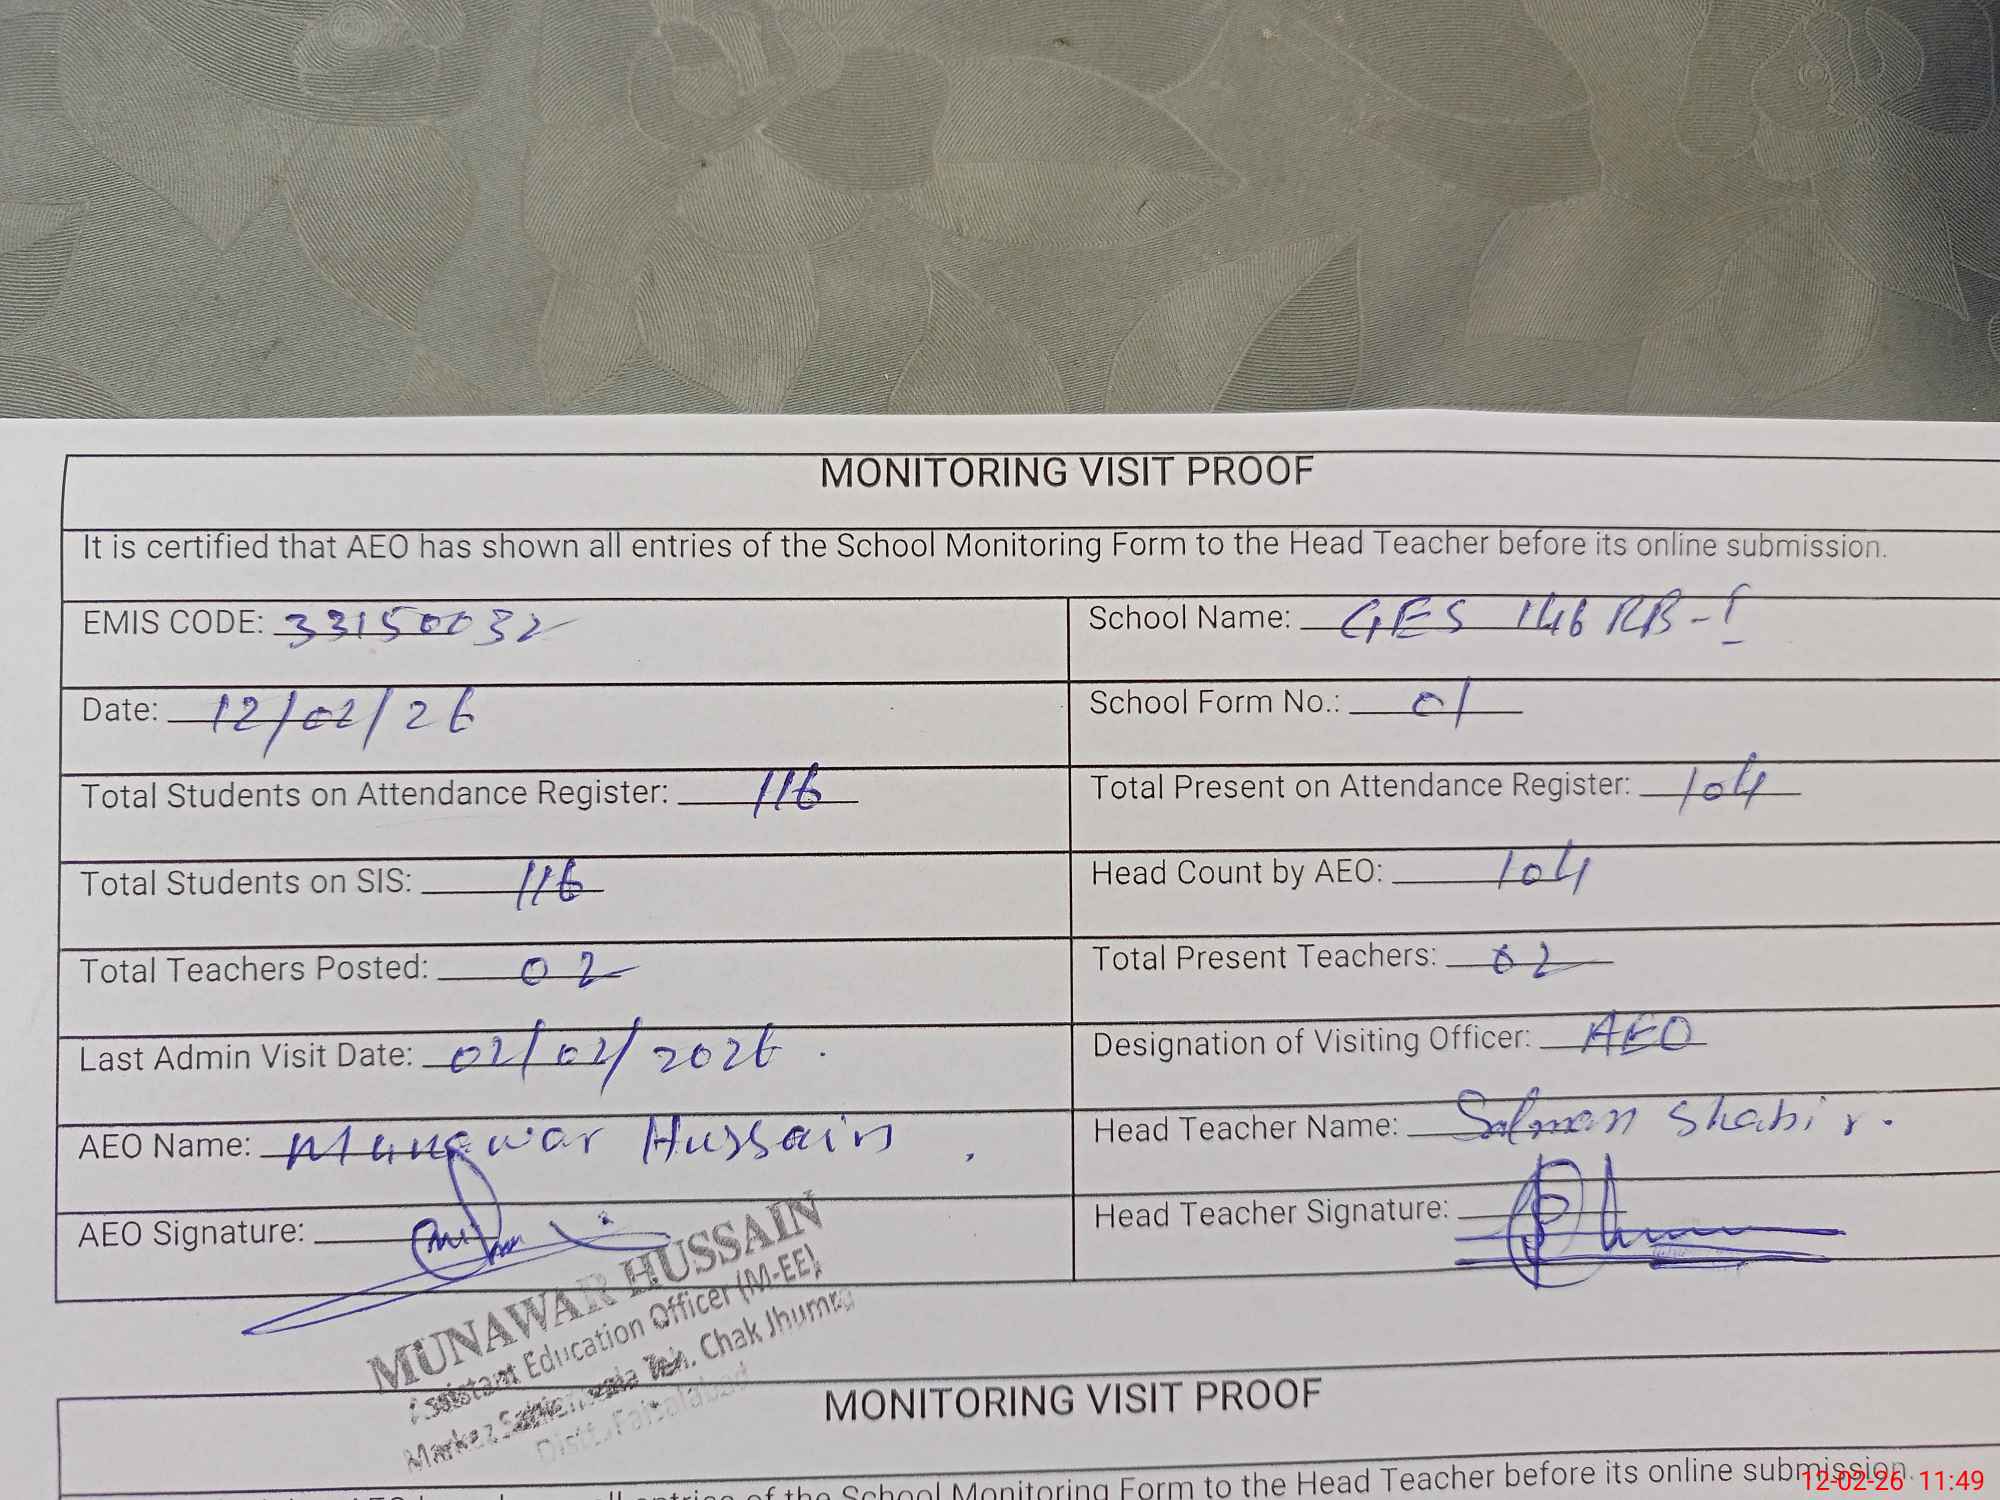 MONITORING VISIT PROOF
It is certified that AEO has shown all entries of the School Monitoring Form to the Head Teacher before its online submission.
EMIS CODE: 33150032
School Name: GES 146 RB-I
Date: 12/02/26
School Form No.: 01
Total Students on Attendance Register: 116
Total Present on Attendance Register: 104
Total Students on SIS: 116
Head Count by AEO: 104
Total Teachers Posted: 02
Total Present Teachers: 02
Last Admin Visit Date: 02/02/2026
Designation of Visiting Officer: AEO
AEO Name: Munawar Hussain
Head Teacher Name: Salman Shabir.
AEO Signature:
Head Teacher Signature:
MUNAWAR HUSSAIN
Assistant Education Officer (M-EE)
Markaz Teh. Chak Jhumra
Distt. Faisalabad
MONITORING VISIT PROOF
entries of the School Monitoring Form to the Head Teacher before its online submission.
12-02-26 11:49